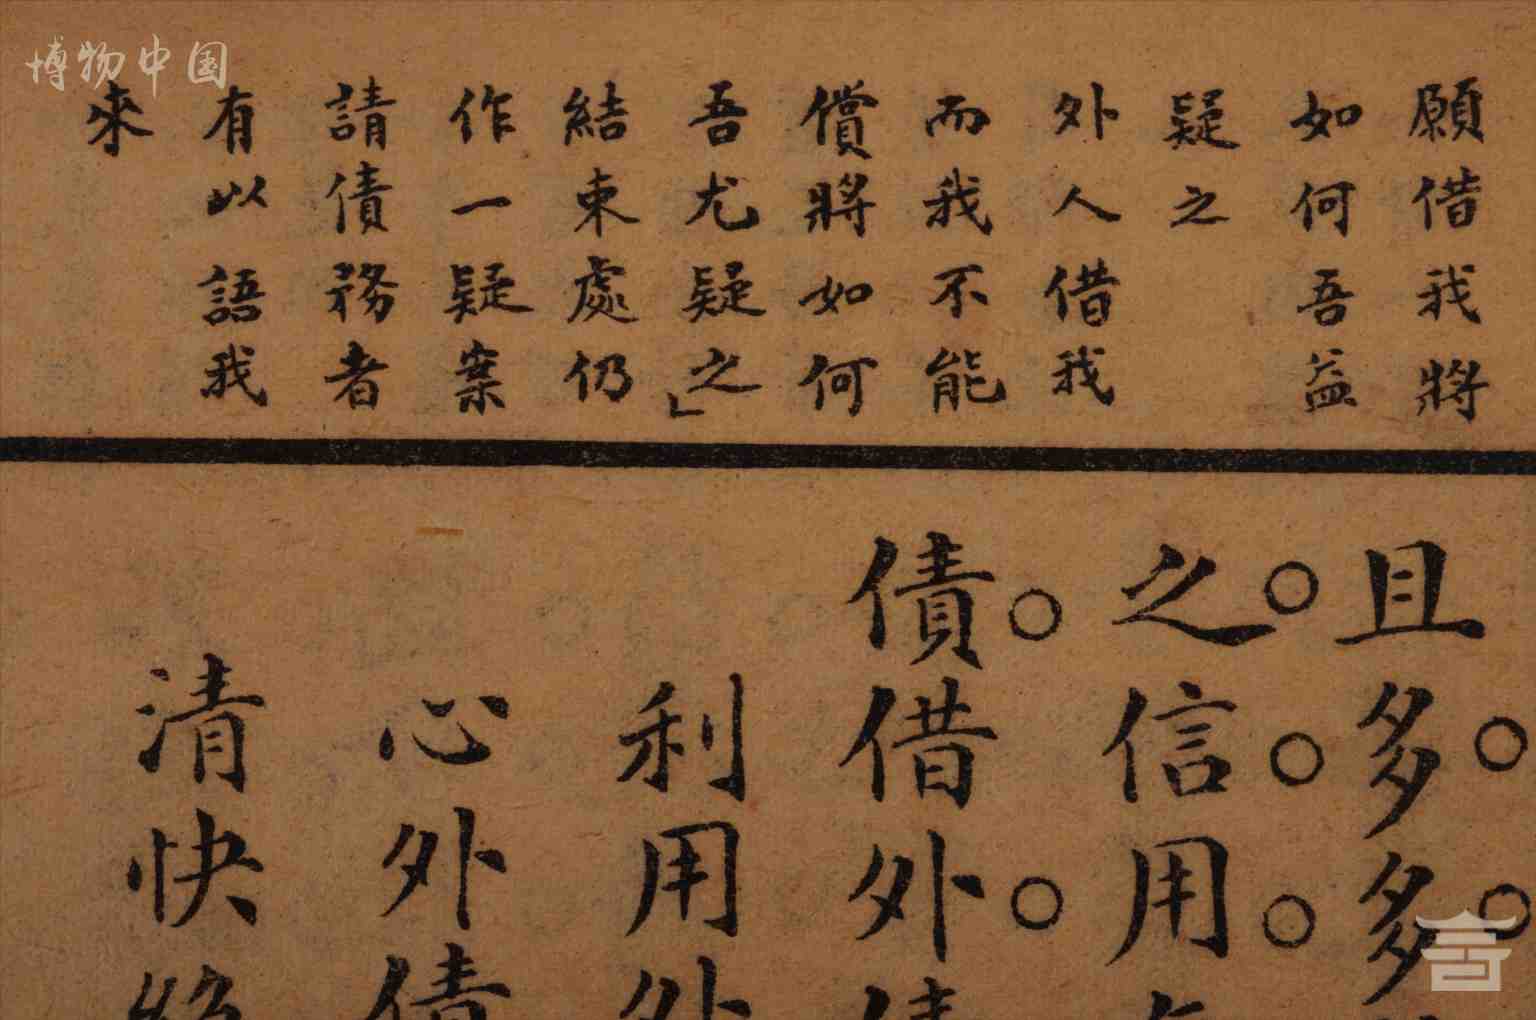 博物中国
願借我將
如何吾益
疑之
外人借我
而我不能
償將如何
吾尤疑之」
結束處仍
作一疑案
請債務者
有以語我
來
且多多
之信用
債借外債
利用外
心外債
清快